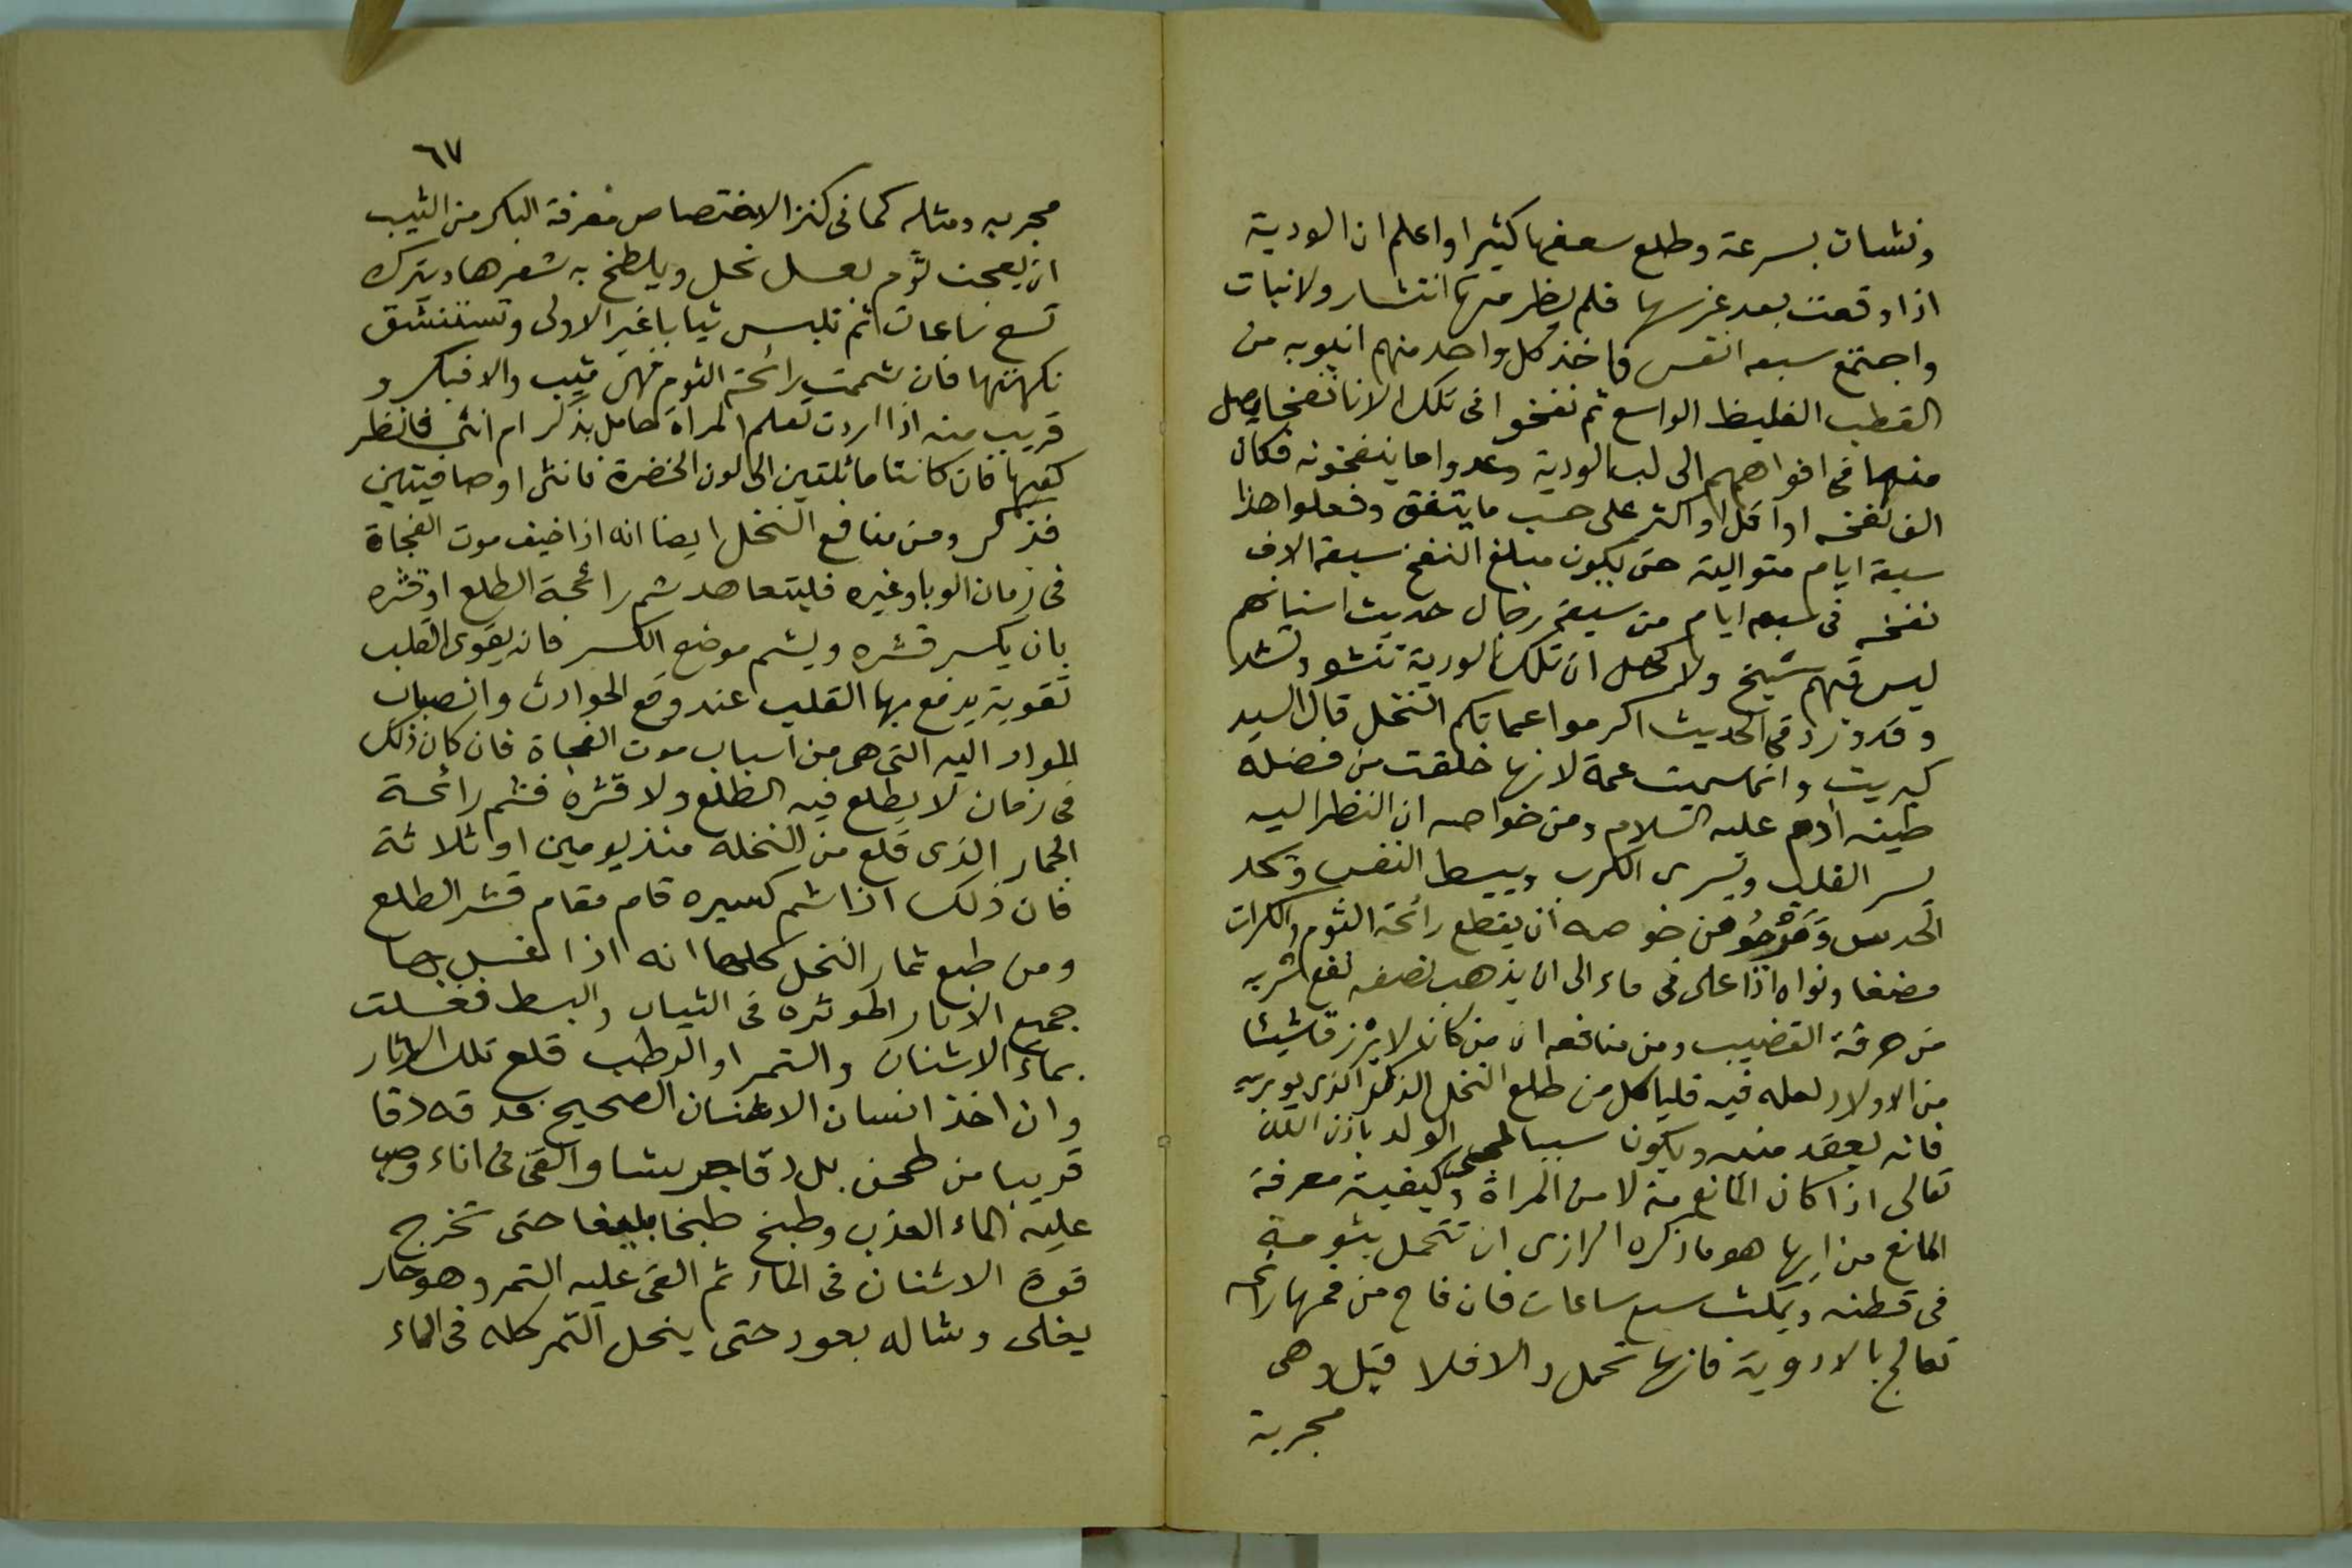 ونشات بسرعة وطلع سعفها كثيرا واعلم ان الودية
اذا وقعت بعد غرسها فلم يظر منها انتشار ولا نبات
واجتمع سبعه انفس فاخذ كل واحد منهم انبوبه من
القطب الغليظ الواسع ثم نفخوا فى تلك الانا نفخا يصل
منها فى افواههم الى لب الودية وعدوا ما ينفخونه فكان
الف نفخه او اقل او اكثر على حسب ما يتفق وفعلوا هذا
سبعة ايام متوالية حتى يكون مبلغ النفخ سبعة الاف
نفخه فى سبعه ايام من سبعة رجال حديث اسنانهم
ليس فيهم شيخ ولا كهل ان تلك الودية تنشو وتشد
وقد ورد فى الحديث اكرموا عماتكم النخل قال السيد
كبريت وانما سميت عمة لانها خلقت من فضلة
طينه ادم عليه السلام ومن خواصه ان النظر اليه
يسر القلب ويسرى الكرب ويبسط النفس وتحد
الحدس ومن خوصه ان يقطع رائحة الثوم والكراث
مضغا ونواه اذا على فى ماء الى ان يذهب نصفه نفع شربه
من حرقة القضيب ومن منافعه ان من كان لا يرزق شيئا
من الاولاد لعله فيه فلياكل من طلع النخل الذكر الذى يوبر به
فانه يعقد منيه ويكون سببا الولد باذن الله
تعالى اذا كان المانع منه لا من المراة وكيفية معرفة
المانع من ايها هو ما ذكره الرازى ان تتحمل بثومة
فى قطنه ويمكث سبع ساعات فان فاح من فمها رائحه
تعالج بالادوية فانها تحمل والا فلا قيل وهى
مجربة
٦٧
مجربه ومثله كما فى كنز الاختصاص معرفة البكر من الثيب
ان يعجن ثوم بعسل نحل ويلطخ به شعرها ويترك
تسع ساعات ثم تلبس ثيابا غير الاولى وتستنشق
نكهتها فان شممت رائحة الثوم فهى ثيب والا فبكر و
قريب منه اذا اردت تعلم المراة حامل بذكر ام انثى فانظر
كعبها فان كانتا مائلتين الى لون الخضرة فانثى او صافيتين
فذكر ومن منافع النخل ايضا انه اذا خيف موت الفجاة
فى زمان الوبا وغيره فليتعاهد شم رائحة الطلع او قشره
بان يكسر قشره ويشم موضع الكسر فانه يقوى القلب
تقوية يدفع بها القلب عند وقع الحوادث وانصباب
المواد اليه التى هى من اسباب موت الفجاة فان كان ذلك
فى زمان لا يطلع فيه الطلع ولا قشره فشم رائحة
الجمار الذى قلع من النخلة منذ يومين او ثلاثة
فان ذلك اذا شم كسيره قام مقام قشر الطلع
ومن طبع ثمار النخل كلها انه اذا غسل بها
جميع الاثار الموثره فى الثياب والبسط فغسلت
بماء الاشنان والتمر او الرطب قلع تلك الاثار
وان اخذ انسان الاشنان الصحيح بعد قه دقا
قريبا من طحن بل دقا جريشا والقى فى اناء وصب
عليه الماء العذب وطبخ طبخا بليغا حتى تخرج
قوة الاشنان فى الماء ثم القى عليه التمر وهو حار
يغلى وشاله بعود حتى ينحل التمر كله فى الماء